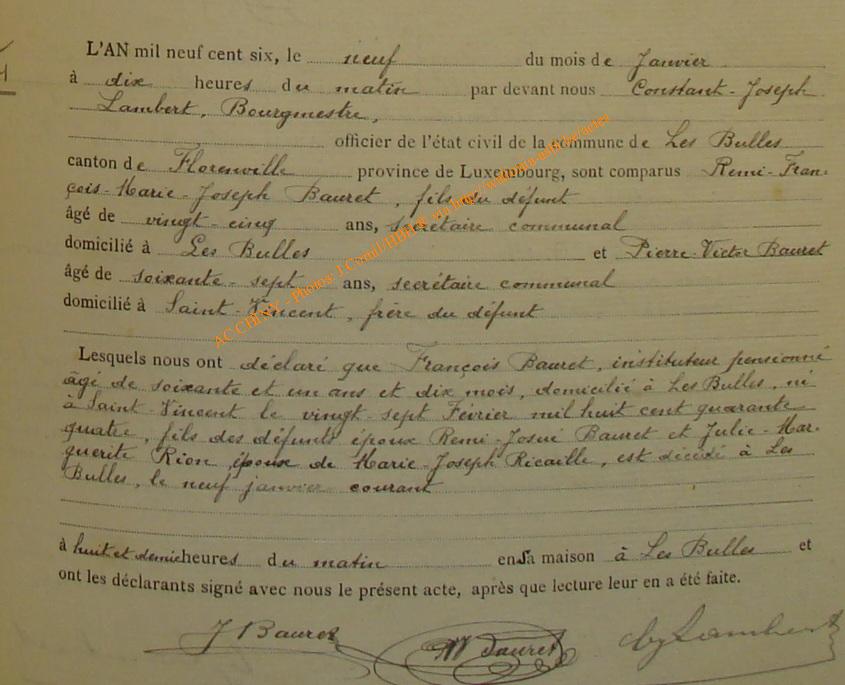 L'AN mil neuf cent six, le neuf du mois de Janvier
à dix heures du matin par devant nous Constant-Joseph
Lambert, Bourgmestre,
officier de l'état civil de la commune de Les Bulles
canton de Florenville province de Luxembourg, sont comparus Remi-Fran-
çois-Marie-Joseph Bauret, fils du défunt
âgé de vingt-cinq ans, secrétaire communal
domicilié à Les Bulles et Pierre-Victor Bauret
âgé de soixante-sept ans, secrétaire communal
domicilié à Saint-Vincent, frère du défunt
Lesquels nous ont déclaré que François Bauret, instituteur pensionné
âgé de soixante et un ans et dix mois, domicilié à Les Bulles, né
à Saint-Vincent le vingt-sept Février mil huit cent quarante
quatre, fils des défunts époux Remi-Josué Bauret et Julie-Mar-
guerite Rion époux de Marie-Joseph Ricaille, est décédé à Les
Bulles, le neuf janvier courant
à huit et demie heures du matin en sa maison à Les Bulles et
ont les déclarants signé avec nous le présent acte, après que lecture leur en a été faite.
J Bauret Bauret Lambert
AC CHINY - Photos J Czuil/HIBEW